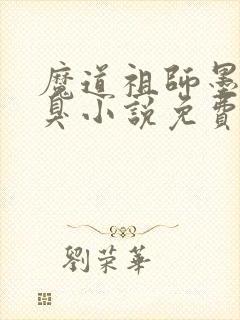 魔道祖師墨
臭小說免費
劉荣華